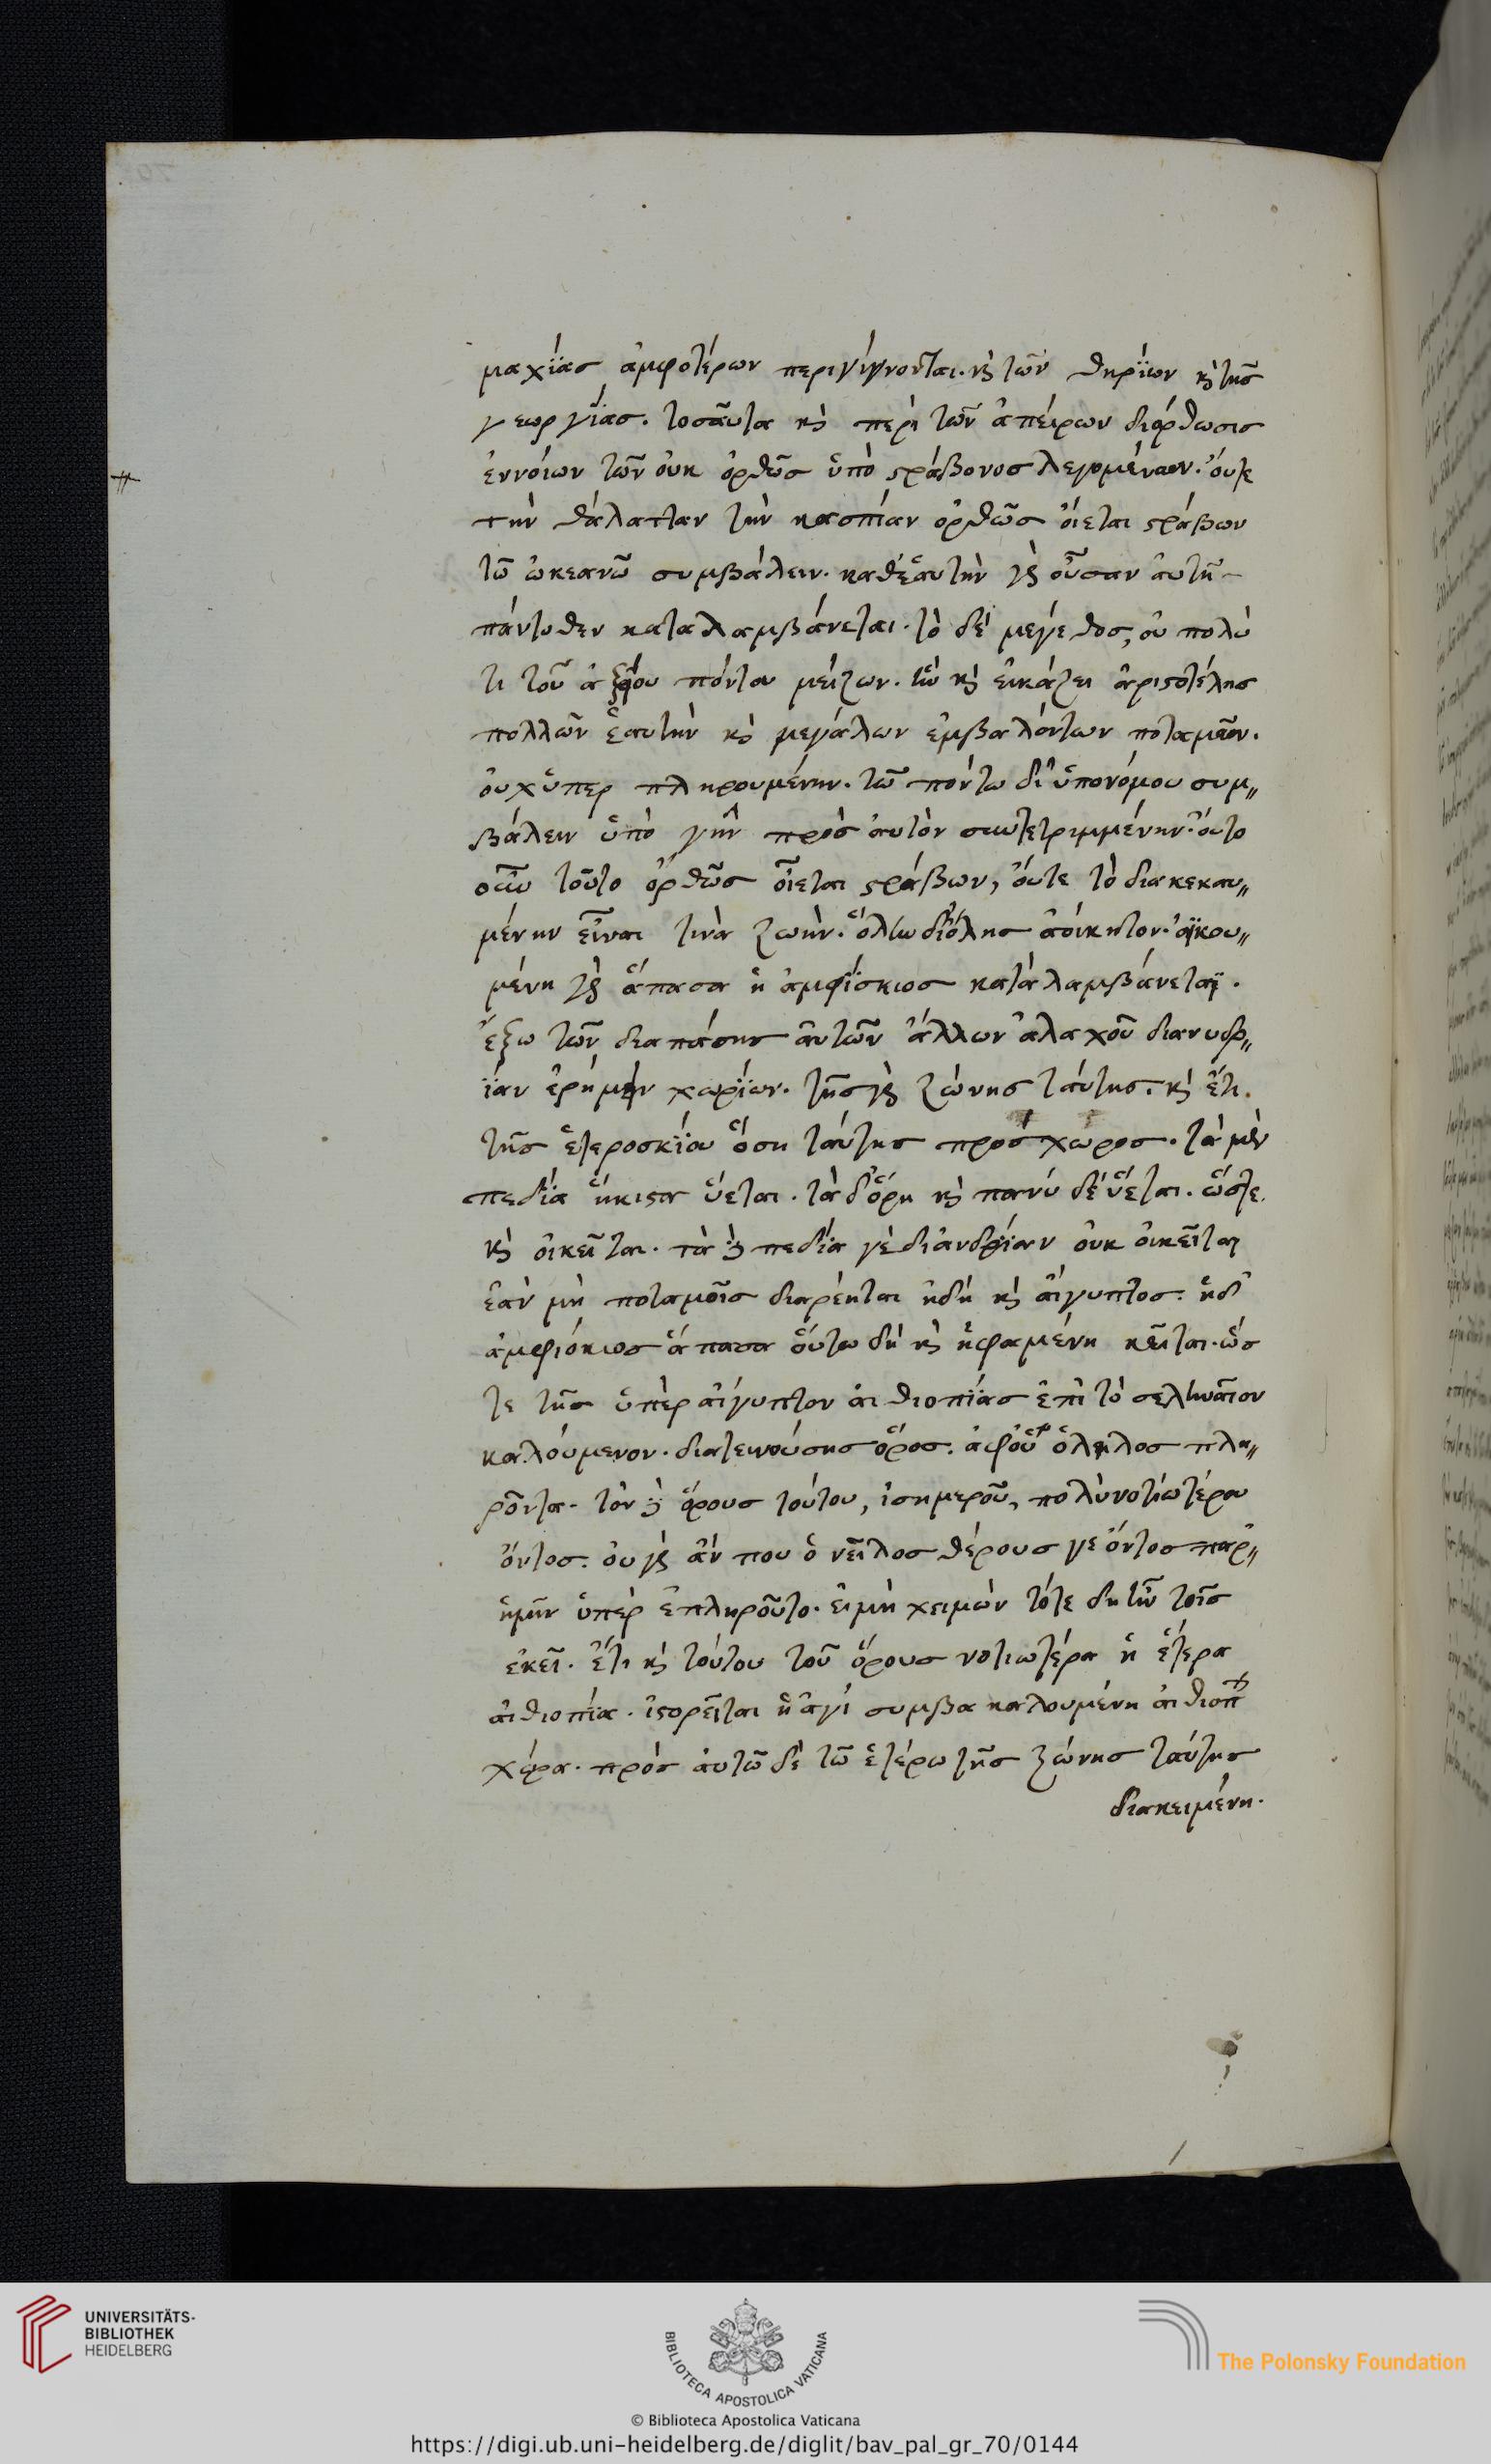 μαχίας ἀμφοτέρων περιγίγνονται. κ̀ τῶν θηρίων κ̀ τῆς
γεωργίας. τοσαῦτα κ̀ περὶ τῶν ἀπείρων διόρθωσις
ἐννόιων τῶν ὀυκ ὀρθῶς ὑπὸ στράβονος λεγομένων. ὄυτε
τὴν θάλατταν τὴν κασπίαν ὀρθῶς ὄιεται στράβων
τῶ ὠκεανῶ συμβάλειν. καθ' ἑαυτὴν γὰρ οὖσαν ἀυτῆ
πάντοθεν καταλαμβάνεται. τὸ δὲ μέγεθος, ὀυ πολύ
τι τοῦ ἀξένου πόντου μείζων. ἣν κ̀ εἰκάζει ἀριστοτέλης
πολλῶν ἑαυτὴν κ̀ μεγάλων ἐμβαλόντων ποταμῶν.
ὀυχ ὕπερ πληρουμένην. τῶ πόντω δι' ὑπονόμου συμ〃
βάλειν ὑπὸ γῆν πρὸς ἀυτὸν συντετριμμένην. ὄυτο
οὖν τοῦτο ὀρθῶς οἴεται στράβων, ὄυτε τὸ διακεκαυ〃
μένην εἶναι τινὰ ζωὴν. ὅλην διόλης ἀοίκητον. ὀικου〃
μένη γὰρ ἅπασα ἡ ἀμφίσκιος καταλαμβάνεται.
ἔξω τῶν διαπάσης ἀυτῶν ἄλλων ἀλαχοῦ διανυδρ〃
ίαν ἐρήμων χωρίων. τῆς γὰρ ζώνης ταύτης. κ̀ ἔτι.
τῆς ἑτεροσκίου ὅση ταύτης πρόσχωρος. τὰ μὲν
πεδία ἥκιστα ὕεται. τὰ δ' ὄρη κ̀ πανύ δὲ ὕεται. ὥστε
κ̀ ὀικεῖται. τὰ δὲ πεδία γὲ διἀνδρίαν ὀυκ ὀικεῖται
ἐὰν μὴ ποταμοῖς διαρέηται ἠδή κ̀ αἴγυπτος. ἡδ'
ἀμφίσκιος ἅπασα ὅυτω δὴ κ̀ ἡφαμένη κεῖται. ὥσ
τε τῆς ὑπὲρ αἴγυπτον ἀιθιοπίας ἐπὶ τὸ σεληναῖον
καλούμενον. διατεινούσης ὄρος. ἀφ' οὗ ὁ νεῖλος πλη〃
ροῦται. τὸν δὲ ὄρους τούτου, ἰσημεροῦ, πολὺ νοτιωτέρου
ὄντος. ὀυ γὰρ ἄν που ὁ νεῖλος θέρους γε ὄντος παρ'〃
ἡμῖν ὑπὲρ ἐπληροῦτο. εἰ μὴ χειμὼν τότε δὴ ἦν τοῖς
ἐκεῖ. ἔτι κ̀ τούτου τοῦ ὄρους νοτιωτέρα ἡ ἑτερα
ἀιθιοπία. ἱστορεῖται ἡ ἀγί συμβα καλουμένη ἀιθιοπ
χώρα. πρός ἀυτῶ δὲ τῶ ἑτέρω τῆς ζώνης ταύτης
διακειμένη.
UNIVERSITÄTS-
BIBLIOTHEK
HEIDELBERG
BIBLIOTECA APOSTOLICA VATICANA
The Polonsky Foundation
© Biblioteca Apostolica Vaticana
https://digi.ub.uni-heidelberg.de/diglit/bav_pal_gr_70/0144